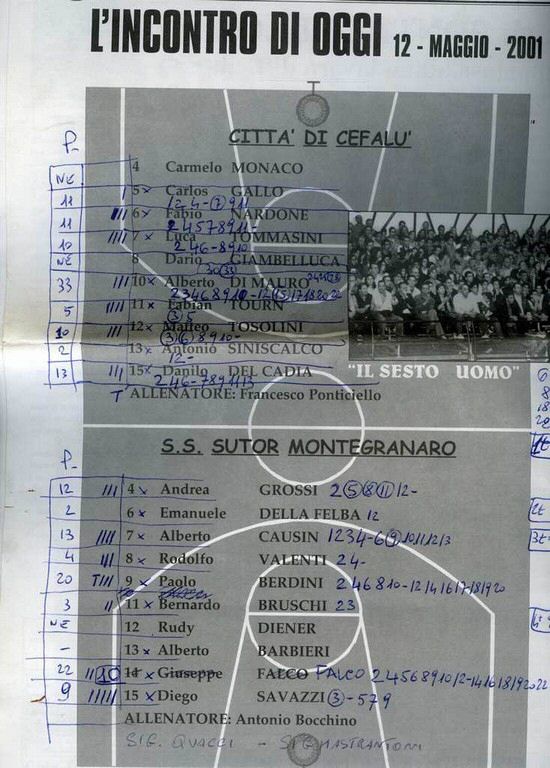 L'INCONTRO DI OGGI 12 - MAGGIO - 2001
P.
CITTA' DI CEFALU'
NE 4 Carmelo MONACO
11 5 x Carlos GALLO
11 6 x Fabio NARDONE
10 7 x Luca TOMMASINI
2 46-8910
NE 8 Dario GIAMBELLUCA
33 10 x Alberto DI MAURO
5 11 x Fabian TOURN
3 5
10 12 x Matteo TOSOLINI
3 6 8 9 10-
2 13 x Antonio SINISCALCO
12-
13 15 x Danilo DEL CADIA
246-7891113
"IL SESTO UOMO"
ALLENATORE: Francesco Ponticiello
P.
S.S. SUTOR MONTEGRANARO
12 4 x Andrea GROSSI 2 5 8 11 12-
2 6 x Emanuele DELLA FELBA 12
13 7 x Alberto CAUSIN 1234-6 9 10/11/12/13
4 8 x Rodolfo VALENTI 24-
20 9 x Paolo BERDINI 2 4 6 8 10-12/14/16/17/18/19/20
3 11 x Bernardo BRUSCHI 23
NE 12 Rudy DIENER
- 13 x Alberto BARBIERI
22 10 14 x Giuseppe FALCO FALCO 2 4 5 6 8 9 10/12-14/16/18/19/20 22
9 15 x Diego SAVAZZI 3-579
ALLENATORE: Antonio Bocchino
SIG. QUACCI - SIG MASTRANTONI